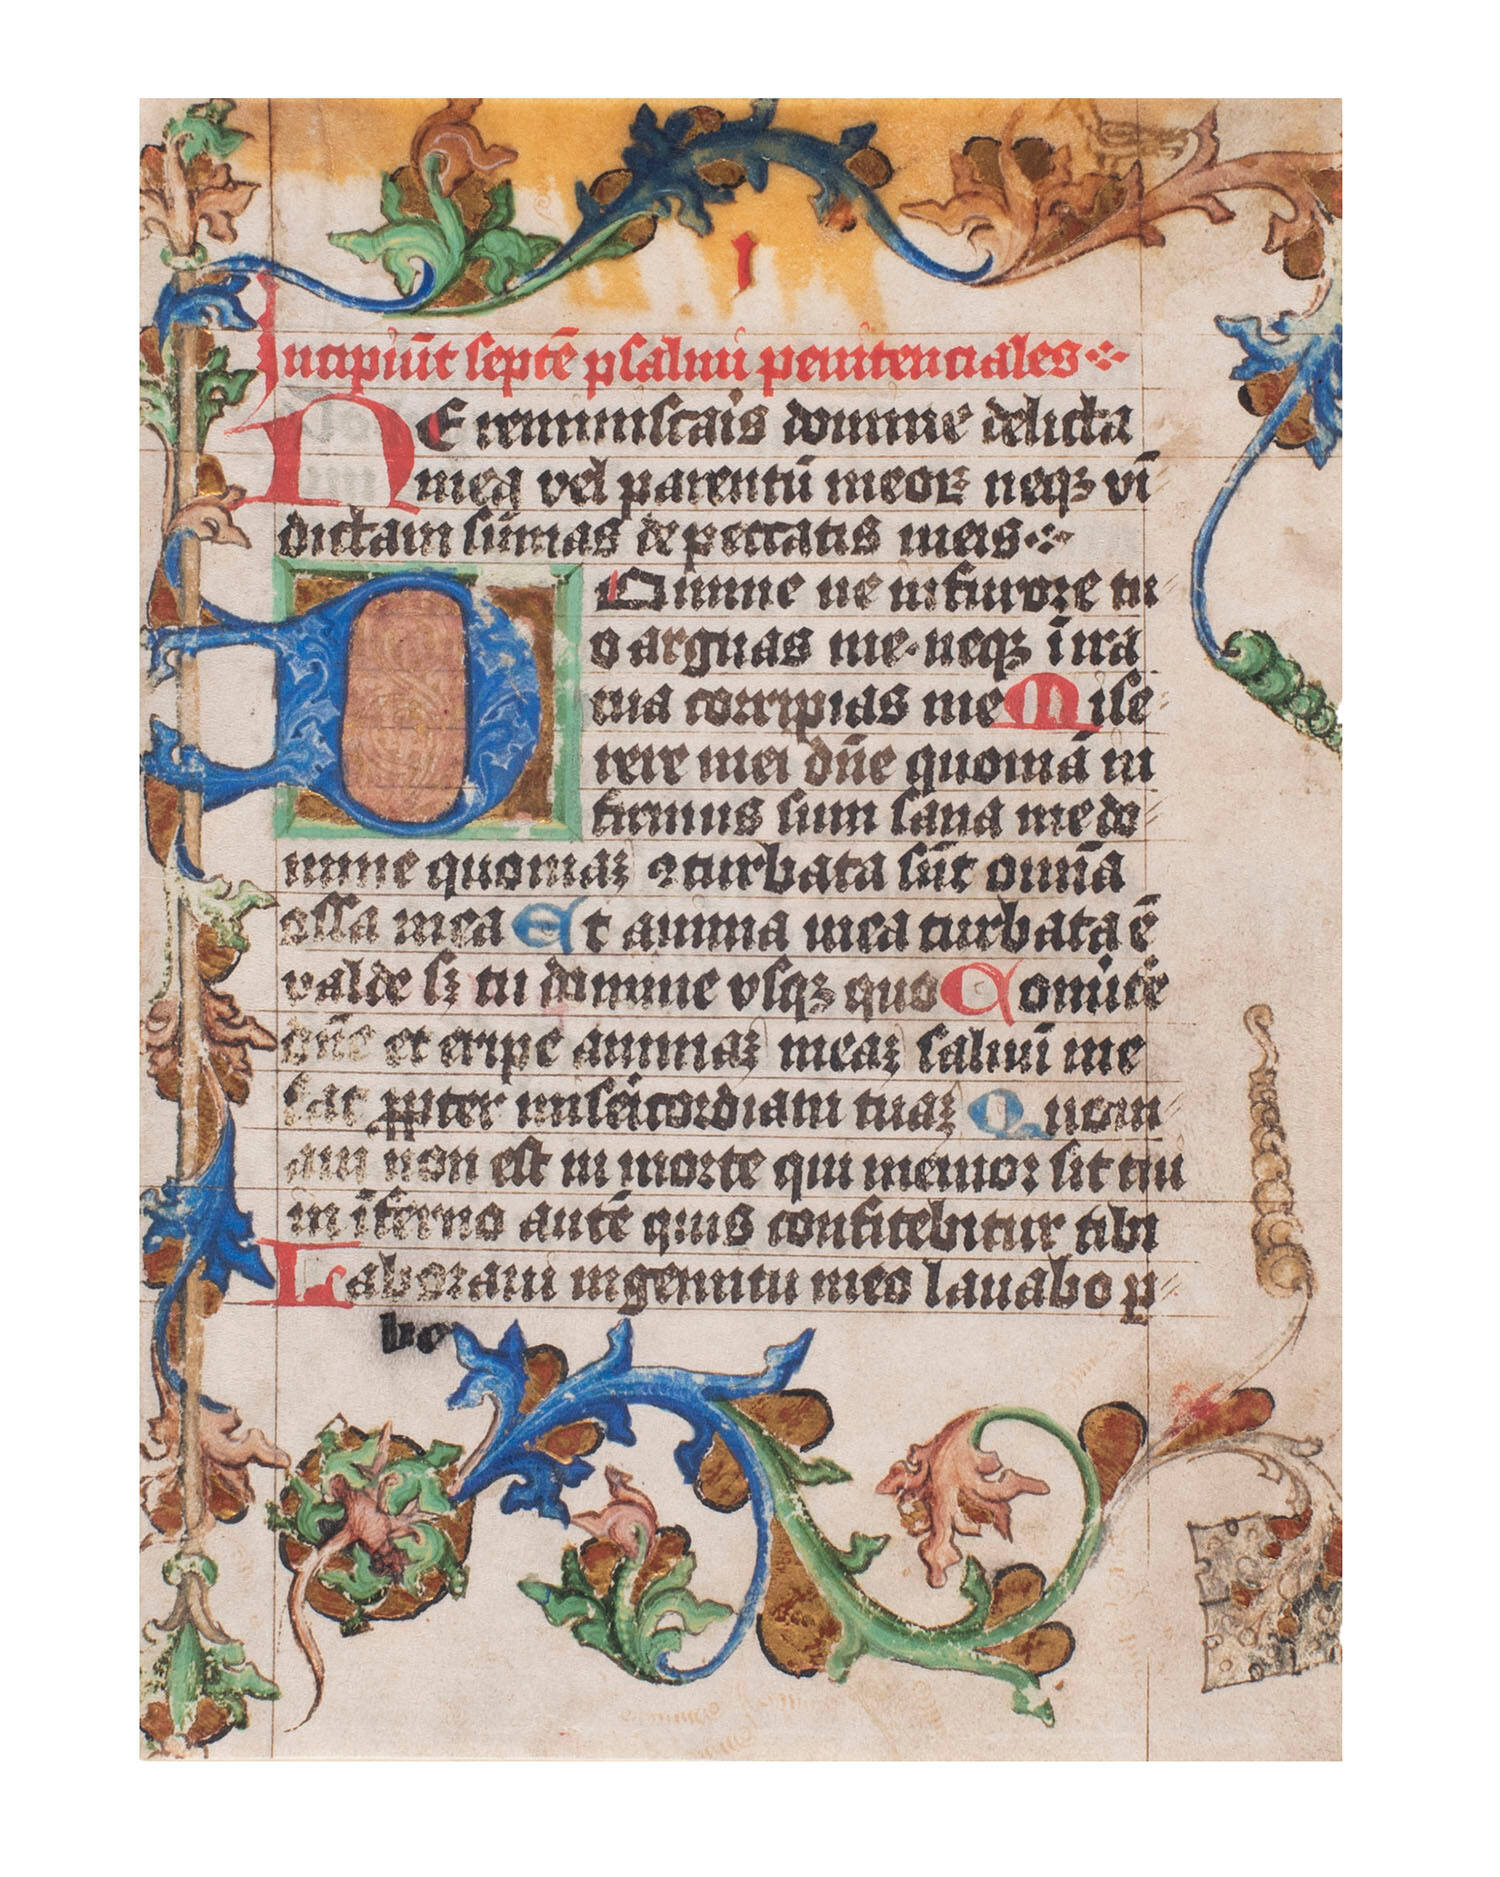 ı
Incipiūt septē psalmi penitenciales
NE reminiscaris domine delicta
mea vel parentū meoꝝ neqꝫ vī
dictam sūmas de peccatis meis
Domine ne in furore tu
o arguas me neqꝫ ī ira
tua corripias me Mise
rere mei dn̄e quoniā in
firmus sum sana me do
mine quoniaꝫ ꝯturbata sūt omīa
ossa mea Et anima mea turbata ē
valde sꝫ tu domine vsqꝫ quo Conu̾te̾
dn̄e et eripe animaꝫ meaꝫ saluū me
fac ꝓpter misericordiam tuaꝫ Quoni
am non est in morte qui memor sit tui
in īferno autē quis confitebitur tibi
Laboraui in gemitu meo lauabo ꝑ